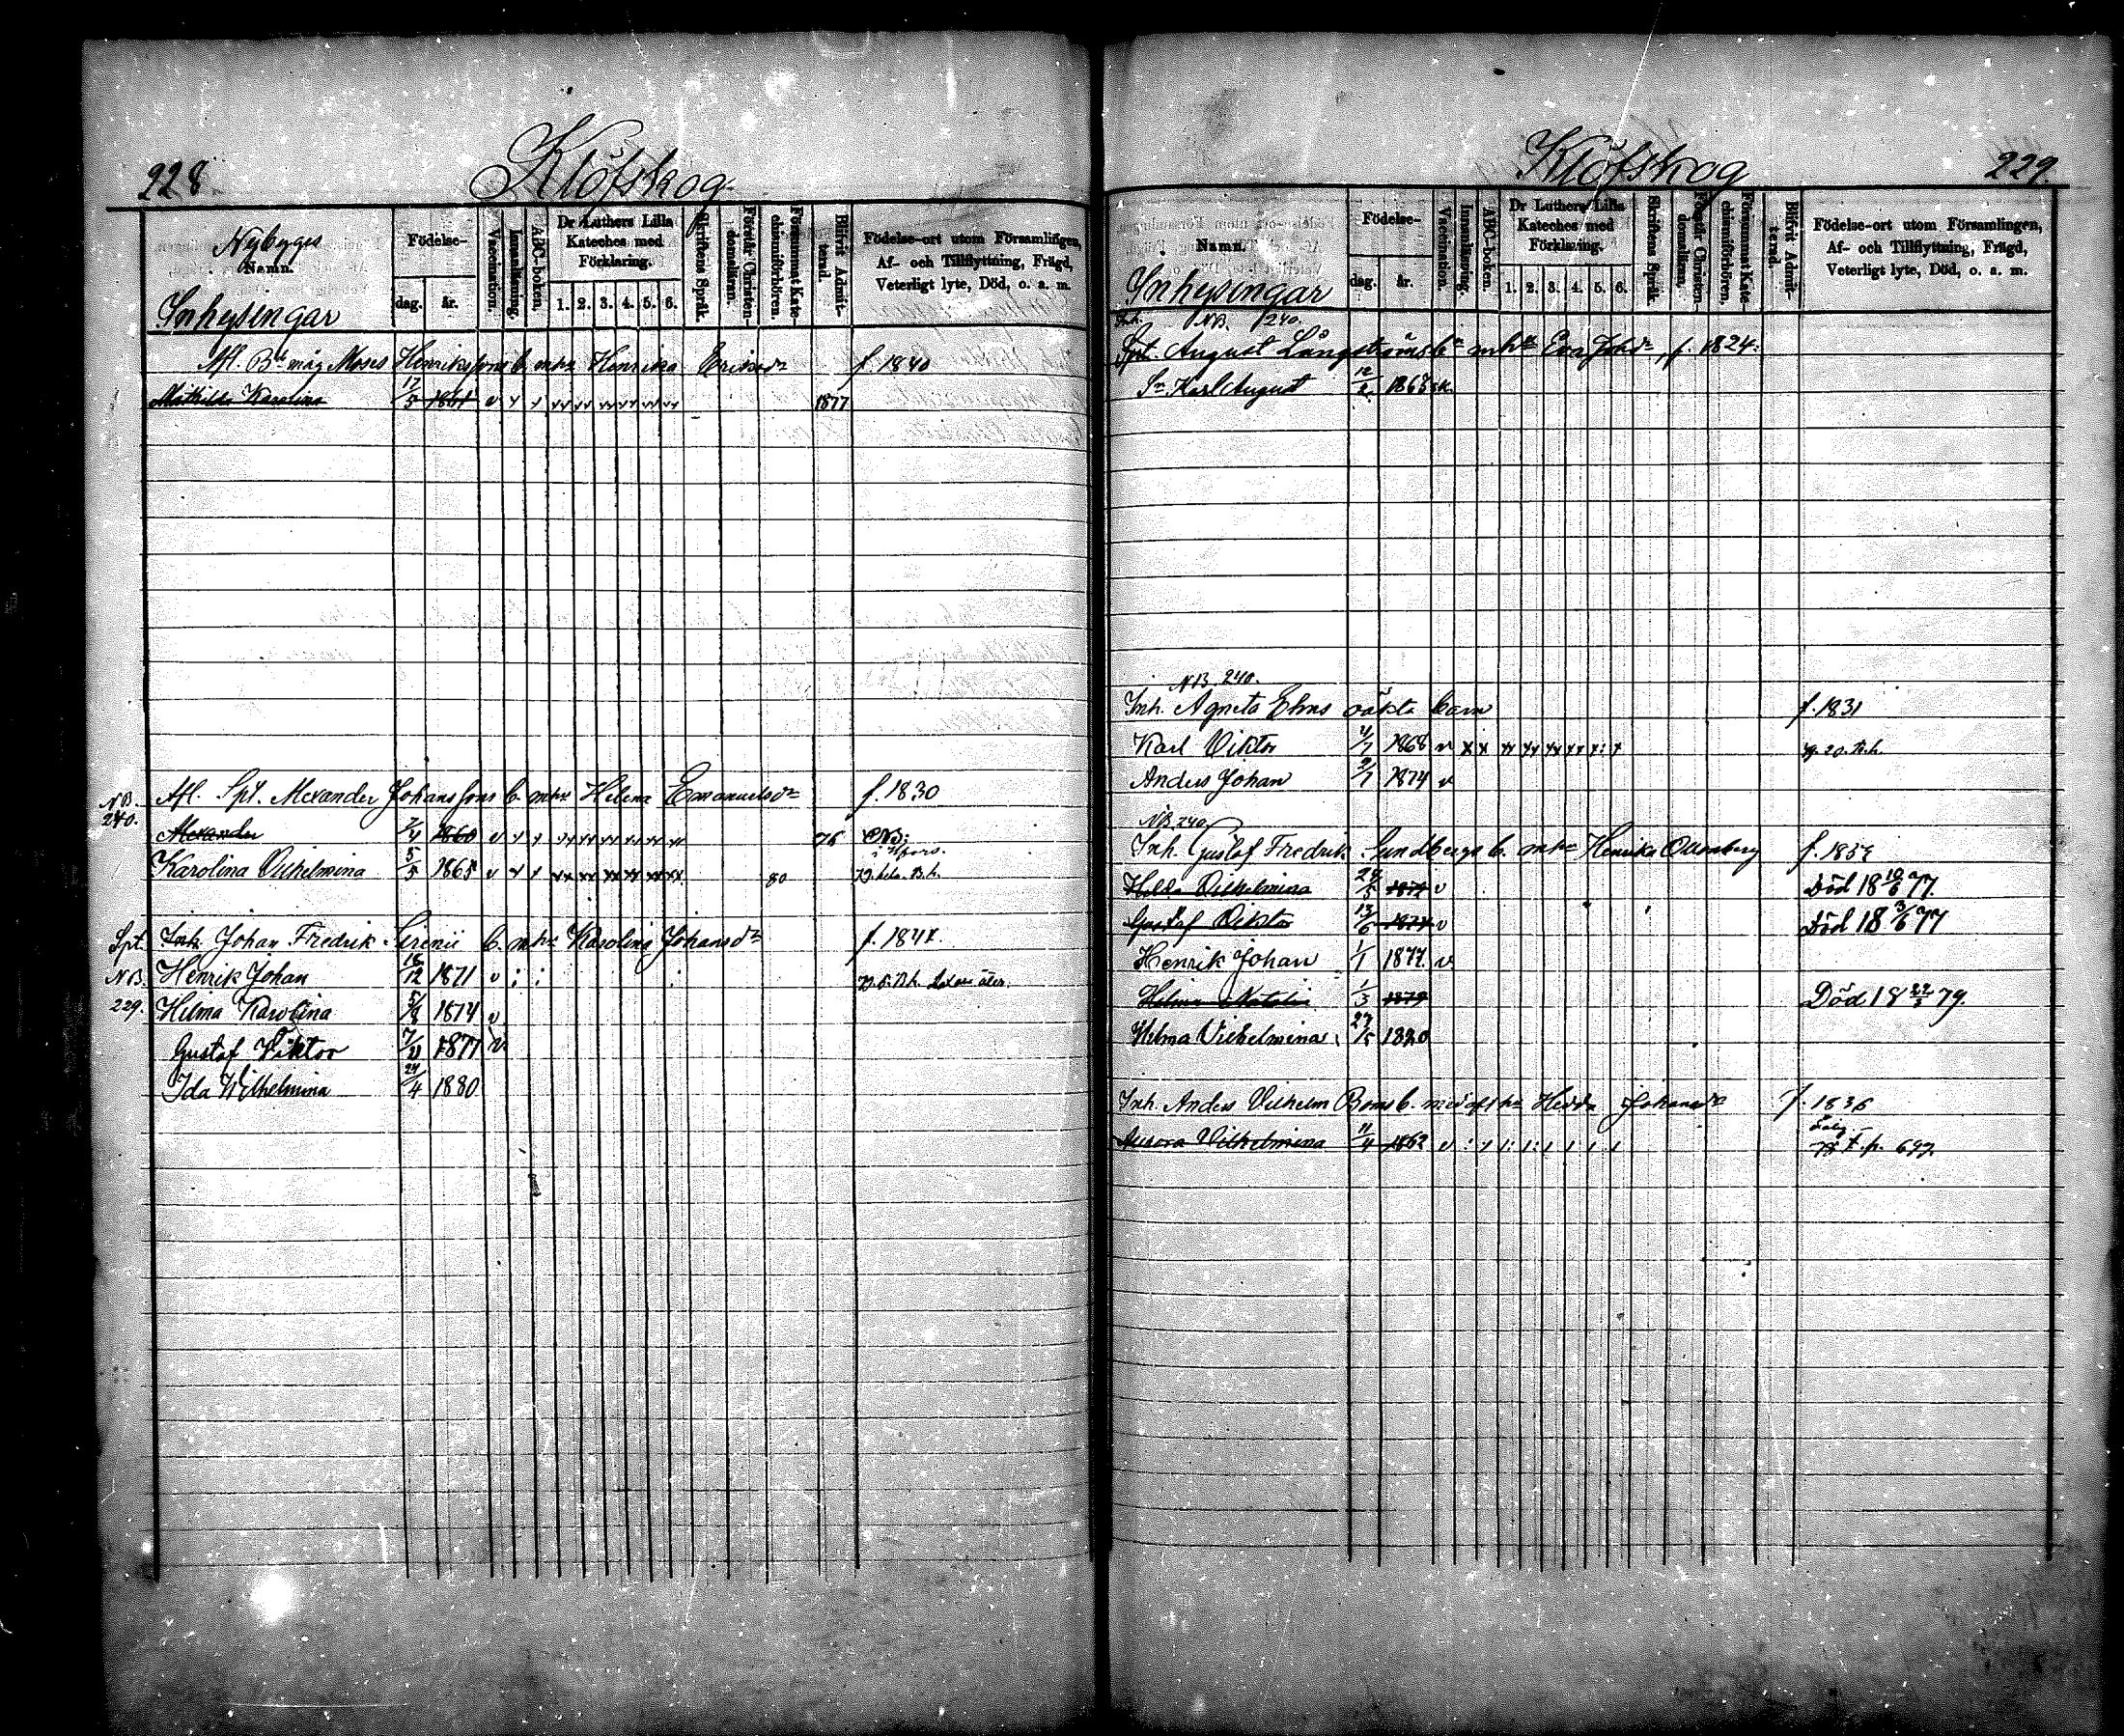 228
Klöfskog
Nybygge
Namn.
Inhysingar
Födelse-
dag.
år.
Vaccination.
Innanläsning.
ABC-boken.
Dr Luthers Lilla
Kateches med
Förklaring.
1. 2. 3. 4. 5. 6.
Skriftens Språk.
Förstår Christen-
domsläran.
Försummat Kate-
chismiförhören.
Blifvit Admit-
terad.
Födelse-ort utom Församlingen,
Af- och Tillflyttning, Frägd,
Veterligt lyte, Död, o. a. m.
Afl. Bd måg Moses Henrikssons b. m hu Henrika Eriksdr f. 1840
Mathilda Karolina 17/5 1861 1877
NB. 240. Afl. Spt. Alexander Johanssons b. m hu Helena Emanuelsdr f. 1830
Alexander 7/4 1860 76
Karolina Vilhelmina 5/5 1865 80
Spt. Inh. Johan Fredrik Sirenii b. m hu Karolina Johansdr
NB. Henrik Johan 18/12 1871
229. Hilma Karolina 1874
Gustaf Viktor 1877
Ida Wilhelmina 24/4 1880
Klöfskog
229.
Namn.
Inhysingar
Födelse-
dag.
år.
Vaccination.
Innanläsning.
ABC-boken.
Dr Luthers Lilla
Kateches med
Förklaring.
1. 2. 3. 4. 5. 6.
Skriftens Språk.
Förstår Christen-
domsläran.
Försummat Kate-
chismiförhören.
Blifvit Admit-
terad.
Födelse-ort utom Församlingen,
Af- och Tillflyttning, Frägd,
Veterligt lyte, Död, o. a. m.
Inh. NB. 240.
Spt. August Långströms bn m hu Eva Johdr, f. 1824.
Sn Karl August 12/2 1863
NB. 240.
Inh. Agneta Ehns oäkta barn f. 1831
Karl Viktor 4/7 1868
Anders Johan 9/7 1874
NB. 240
Inh. Gustaf Fredrik Sundbergs b. m hu Henrika
Hilda Vilhelmina Död 18 10/6 77.
Gustaf Viktor 13/6 Död 18 3/6 77
Henrik Johan 1/1 1877
Hilma Natalia 1/3 1879 Död 18 22/5 79.
Hilma Vilhelmina 27/5 1880
Inh. Anders Vilhelm b. med afl hu Hedda Johansdr f. 1836
Aurora Vilhelmina 11/4 1862 p. 697.